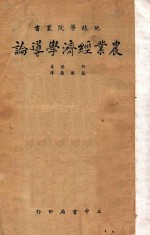 地政學院叢書
農業經濟學導論
正中書局印行